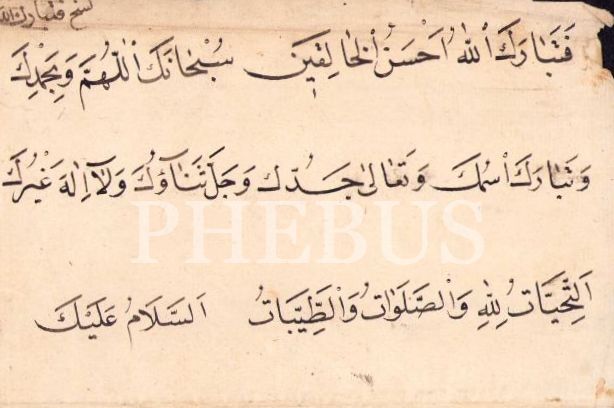 نسخ فتبارك الله
فَتَبَارَكَ اللّٰهُ اَحْسَنُ الْخَالِقِينَ سُبْحَانَكَ اللّٰهُمَّ وَبِحَمْدِكَ
وَتَبَارَكَ اسْمُكَ وَتَعَالٰى جَدُّكَ وَجَلَّ ثَنَاؤُكَ وَلَا اِلٰهَ غَيْرُكَ
PHEBUS
اَلتَّحِيَّاتُ لِلّٰهِ وَالصَّلَوَاتُ وَالطَّيِّبَاتُ اَلسَّلَامُ عَلَيْكَ